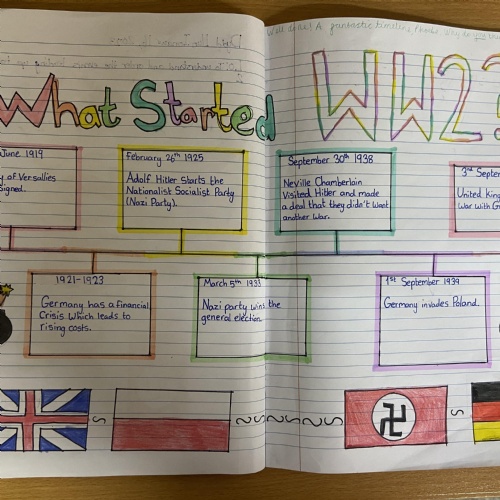 Well done! A fantastic timeline, Why do you
What Started WW2?
June 1919
y of Versailles
signed.
February 26th 1925
Adolf Hitler Starts the
Nationalist Socialist Party
(Nazi Party).
September 30th 1938
Neville Chamberlain
Visited Hitler and made
a deal that they didn't want
another War.
3rd Septem
United king
War with G
1921-1923
Germany has a financial
Crisis Which leads to
rising costs.
March 5th 1933
Nazi party wins the
general election.
1st September 1939
Germany invades Poland.